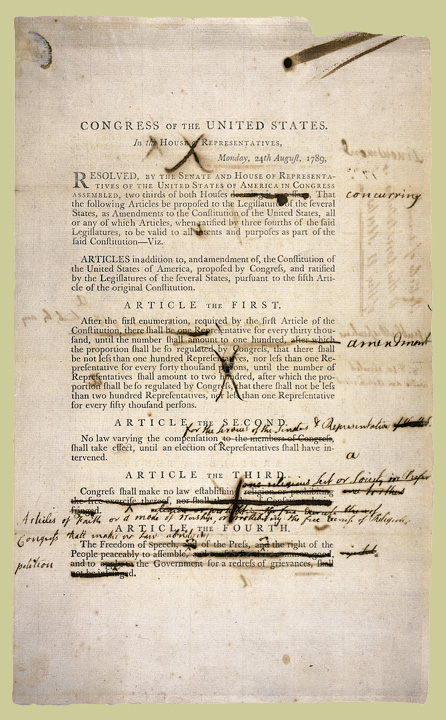 CONGRESS OF THE UNITED STATES.
In the House of Representatives,
Monday, 24th August, 1789,
RESOLVED, BY THE SENATE AND HOUSE OF REPRESENTA-
TIVES OF THE UNITED STATES OF AMERICA IN CONGRESS
ASSEMBLED, two thirds of both Houses That
concurring
the following Articles be proposed to the Legislatures of the several
States, as Amendments to the Constitution of the United States, all
or any of which Articles, when ratified by three fourths of the said
Legislatures, to be valid to all intents and purposes as part of the
said Constitution—Viz.
ARTICLES in addition to, and amendment of, the Constitution of
the United States of America, proposed by Congress, and ratified
by the Legislatures of the several States, pursuant to the fifth Arti-
cle of the original Constitution.
ARTICLE THE FIRST.
After the first enumeration, required by the first Article of the
Constitution, there shall be one Representative for every thirty thou-
sand, until the number shall amount to one hundred, after which
amendment
the proportion shall be so regulated by Congress, that there shall
be not less than one hundred Representatives, nor less than one Re-
presentative for every forty thousand persons, until the number of
Representatives shall amount to two hundred, after which the pro-
portion shall be so regulated by Congress, that there shall not be less
than two hundred Representatives, nor less than one Representative
for every fifty thousand persons.
ARTICLE THE SECOND.
for the services of the Senate & Representatives
No law varying the compensation to the members of Congress,
shall take effect, until an election of Representatives shall have in-
tervened.
a
ARTICLE THE THIRD.
one religious Sect or Society in
Congress shall make no law establishing religion or prohibiting
the free exercise thereof, nor shall the
fringed.
Articles of Faith or a mode of Worship, or prohibiting the free exercise of Religion,
ARTICLE THE FOURTH.
Congress shall make no Law abridging
The Freedom of Speech, and of the Press, and the right of the
People peaceably to assemble,
petition
and to the Government for a redress of grievances, shall
not be infringed.